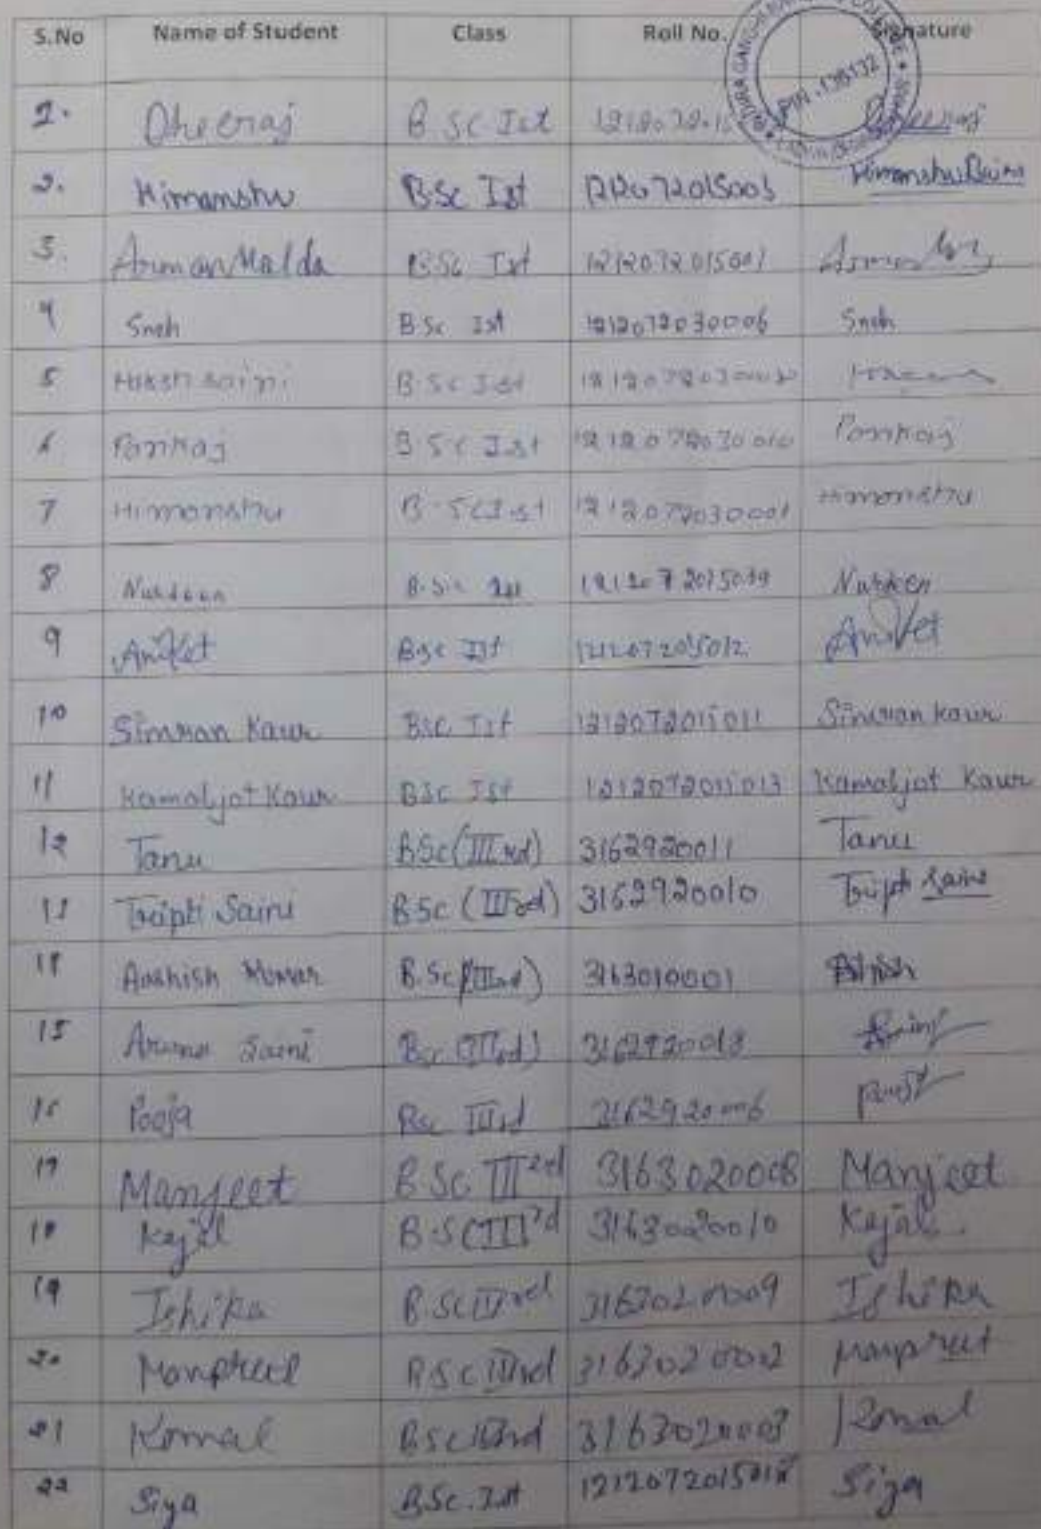 S.No Name of Student Class Roll No. Signature
PIN-136132
1. Dheeraj B.Sc Ist Dheeraj
2. Himanshu B.Sc Ist 1212072015003 Himanshu Saini
3. Arman Malda B.Sc Ist 1212072015001
4 Sneh B.Sc Ist 1212072030006 Sneh
5 Saini B.Sc Ist
6 Pankaj B.Sc Ist 1212072030010 Pankaj
7 Himanshu B.Sc Ist 1212072030001 Himanshu
8 Nurdeen B.Sc Ist
9 Aniket BSc Ist 121207205012 Aniket
10 Simran Kaur BSc Ist 1212072015011 Simran Kaur
11 Kamaljot Kaur BSc Ist 1212072015013 Kamaljot Kaur
12 Tanu BSc (IIIrd) 3162920011 Tanu
13 Tripti Saini BSc (IIIrd) 3162920010 Tripti Saini
14 Aashish B.Sc (IIIrd) 3163010001
15 Saini BSc (IIIrd) Saini
16 Pooja BSc IIIrd 3162920006
17 Manjeet B.Sc IIIrd 3163020008 Manjeet
18 Kajal B.Sc IIIrd 3163020010 Kajal
19 Ishika B.Sc IIIrd 3163020009 Ishika
20 Manpreet B.Sc IIIrd 3163020002 Manpreet
21 Komal B.Sc IIIrd 3163020003 Komal
22 Siya B.Sc. Ist Siya